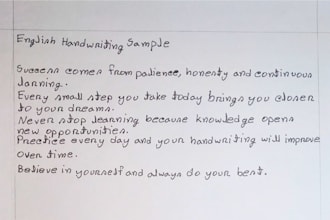 English Handwriting Sample
Success comes from patience, honesty and continuous
larning.
Every small step you take today brings you closer
to your dreams.
Never stop learning because knowledge opens
new opportunities.
Prectice every day and your handwriting will improve
over time.
Believe in yourself and always do your best.